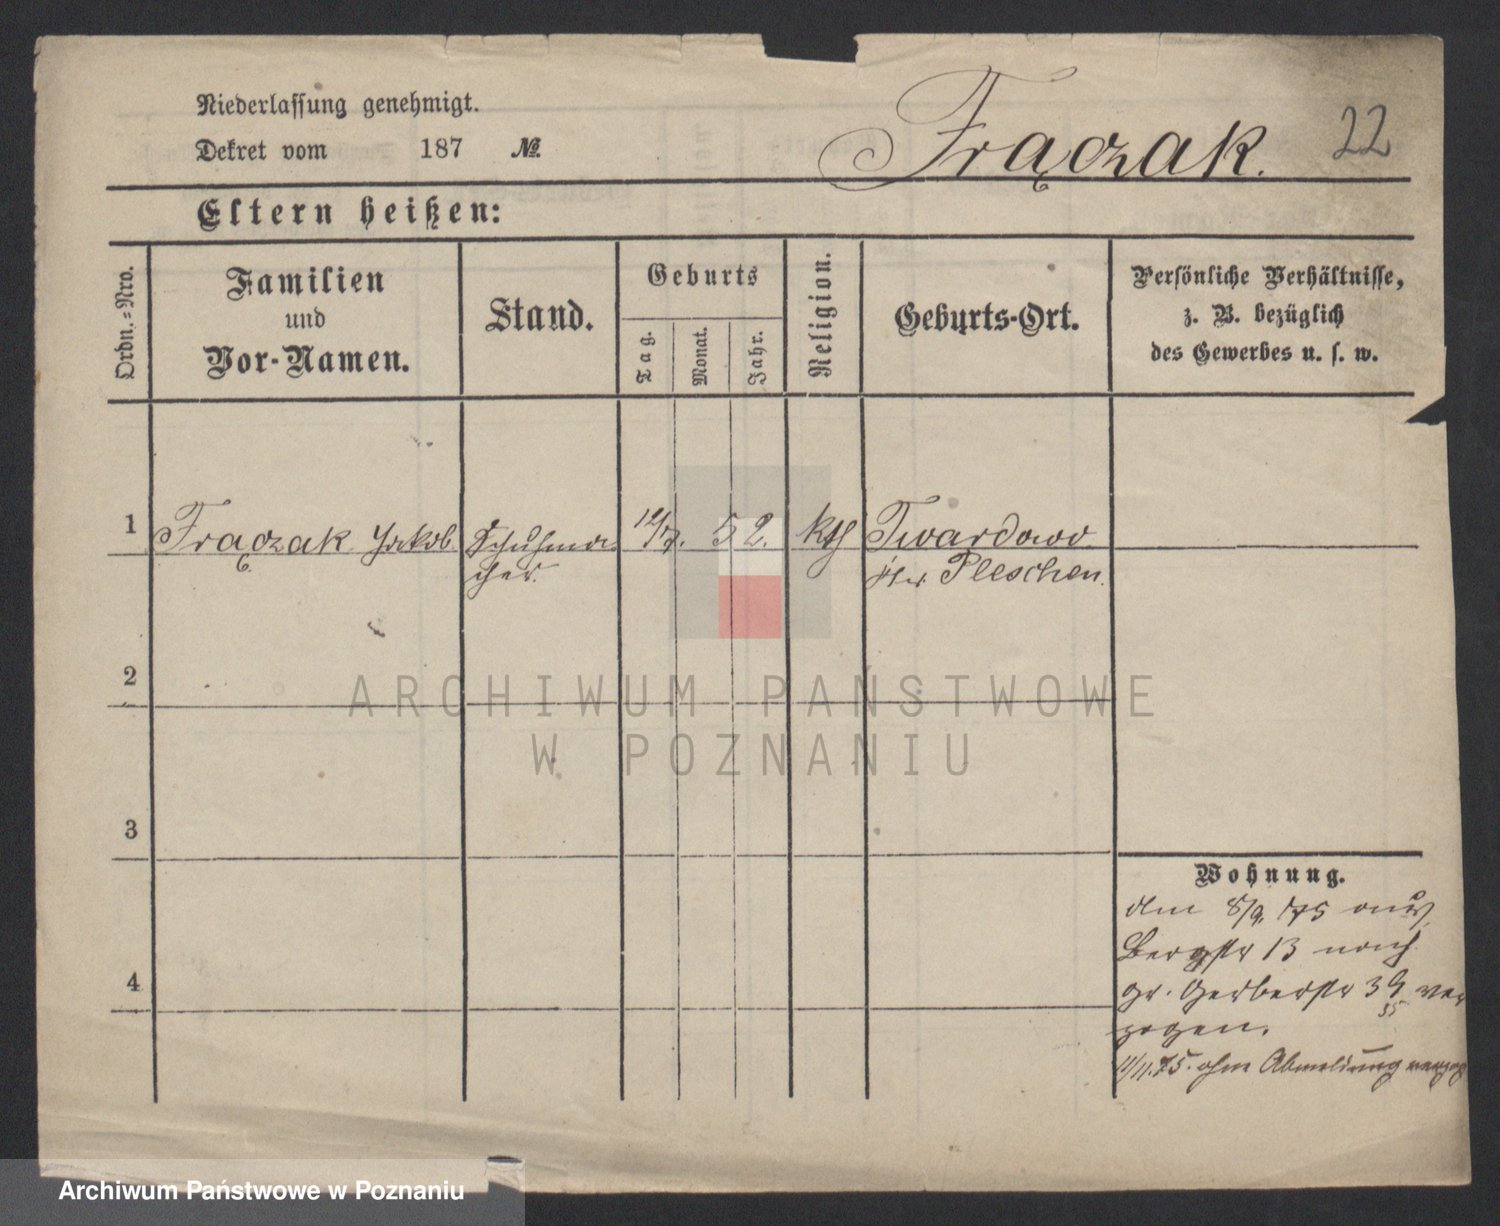 Niederlassung genehmigt.
Dekret vom 187 №
Frączak.
22
Eltern heißen:
Ordn.-Nro.
Familien
und
Vor-Namen.
Stand.
Geburts
Tag.
Monat.
Jahr.
Religion.
Geburts-Ort.
Persönliche Verhältnisse,
z. B. bezüglich
des Gewerbes u. s. w.
1 Frączak Jakob Schuhma 12/7. 52. kth Twardowo
cher. Pleschen.
2
ARCHIWUM PAŃSTWOWE
W POZNANIU
3
Wohnung.
den 8/9. 75 aus
Bergstr 13 nach
4
gr. Gerberstr 39 ver
35
zogen.
11/11.75. ohne Abmeldung verzog
Archiwum Państwowe w Poznaniu